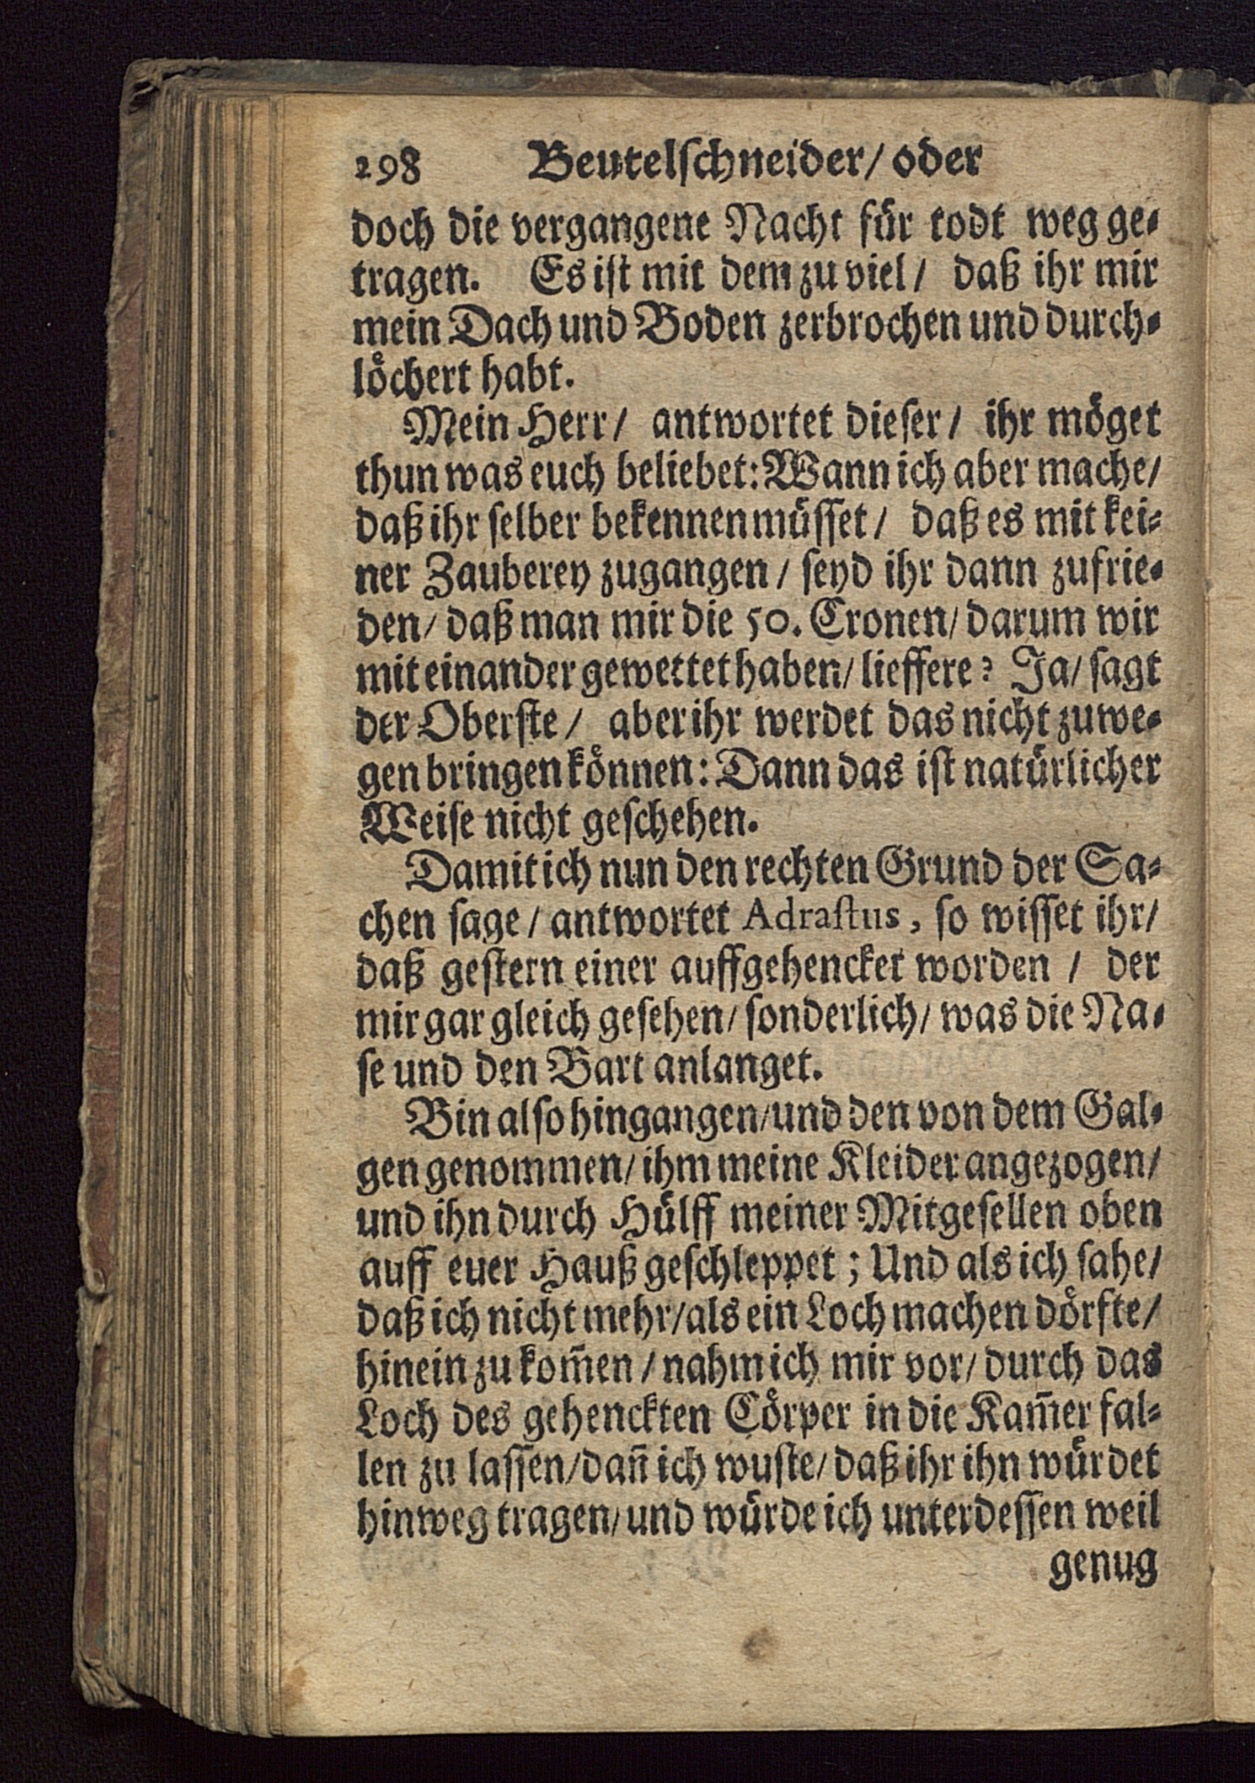 298 Beutelschneider/ oder
doch die vergangene Nacht für todt weg ge-
tragen. Es ist mit dem zu viel/ daß ihr mir
mein Dach und Boden zerbrochen und durch-
löchert habt.
Mein Herr/ antwortet dieser/ ihr möget
thun was euch beliebet: Wann ich aber mache/
daß ihr selber bekennen müsset/ daß es mit kei-
ner Zauberey zugangen/ seyd ihr dann zufrie-
den/ daß man mir die 50. Cronen/ darum wir
mit einander gewettet haben/ lieffere? Ja/ sagt
der Oberste/ aber ihr werdet das nicht zuwe-
gen bringen können: Dann das ist natürlicher
Weise nicht geschehen.
Damit ich nun den rechten Grund der Sa-
chen sage/ antwortet Adrastus, so wisset ihr/
daß gestern einer auffgehencket worden/ der
mir gar gleich gesehen/ sonderlich/ was die Na-
se und den Bart anlanget.
Bin also hingangen/ und den von dem Gal-
gen genommen/ ihm meine Kleider angezogen/
und ihn durch Hülff meiner Mitgesellen oben
auff euer Hauß geschleppet; Und als ich sahe/
daß ich nicht mehr/ als ein Loch machen dörfte/
hinein zu kom̃en/ nahm ich mir vor/ durch das
Loch des gehenckten Cörper in die Kam̃er fal-
len zu lassen/ dañ ich wuste/ daß ihr ihn würdet
hinweg tragen/ und würde ich unterdessen weil
genug